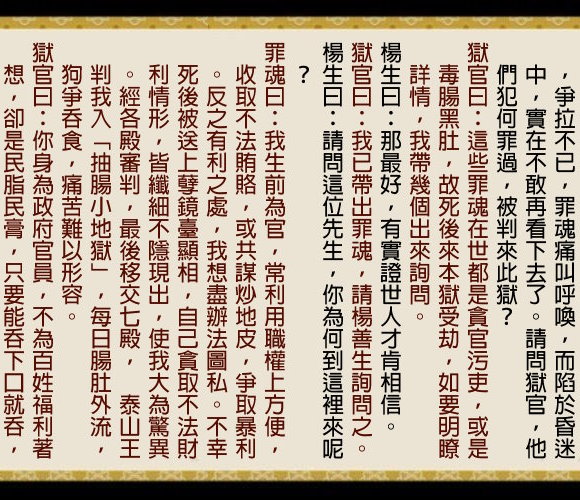 ，爭拉不已，罪魂痛叫呼喚，而陷於昏迷
中，實在不敢再看下去了。請問獄官，他
們犯何罪過，被判來此獄？
獄官曰：這些罪魂在世都是貪官污吏，或是
毒腸黑肚，故死後來本獄受劫，如要明瞭
詳情，我帶幾個出來詢問。
楊生曰：那最好，有實證世人才肯相信。
獄官曰：我已帶出罪魂，請楊善生詢問之。
楊生曰：請問這位先生，你為何到這裡來呢
？
罪魂曰：我生前為官，常利用職權上方便，
收取不法賄賂，或共謀炒地皮，爭取暴利
。反之有利之處，我想盡辦法圖私。不幸
死後被送上孽鏡臺顯相，自己貪取不法財
利情形，皆纖細不隱現出，使我大為驚異
。經各殿審判，最後移交七殿，　泰山王
判我入「抽腸小地獄」，每日腸肚外流，
狗爭吞食，痛苦難以形容。
獄官曰：你身為政府官員，不為百姓福利著
想，卻是民脂民膏，只要能吞下口就吞，